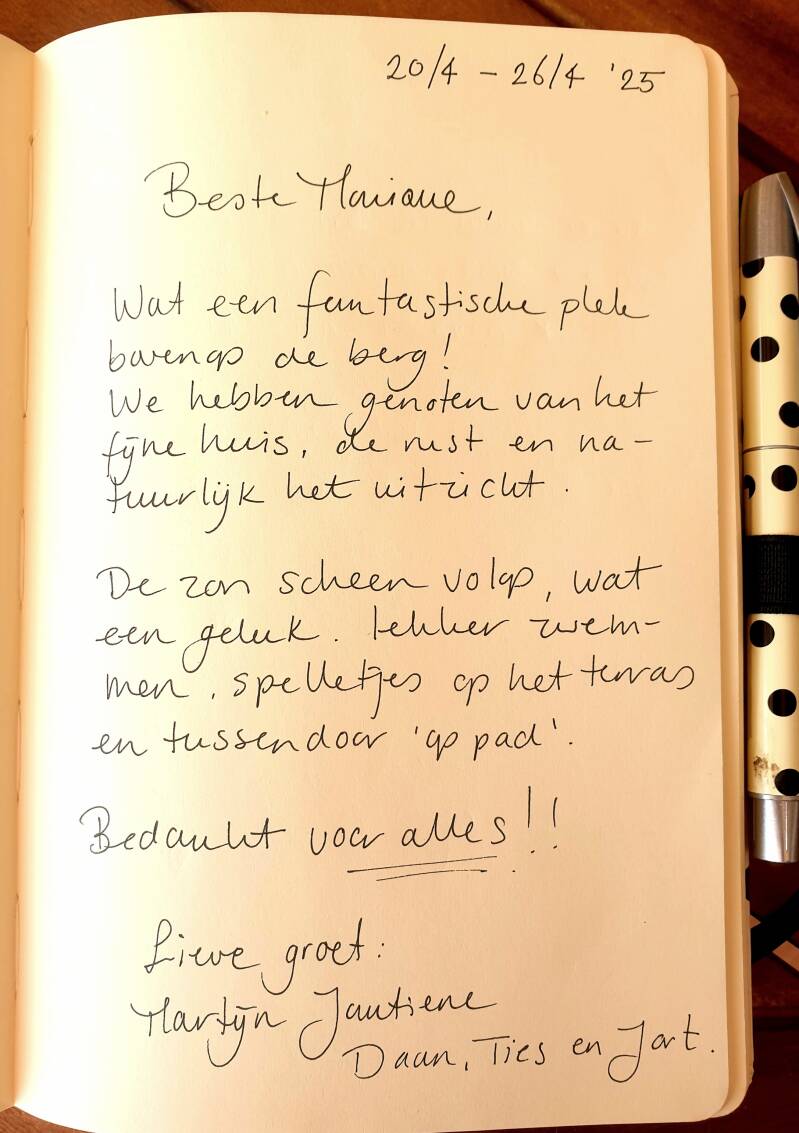 20/4 - 26/4 '25
Beste Mariane,
Wat een fantastische plek
bovenop de berg!
We hebben genoten van het
fijne huis, de rust en na-
tuurlijk het uitzicht.
De zon scheen volop, wat
een geluk. Lekker zwem-
men, spelletjes op het terras
en tussendoor 'op pad'.
Bedankt voor alles!!
Lieve groet:
Martijn Jantiene
Daan, Ties en Jort.